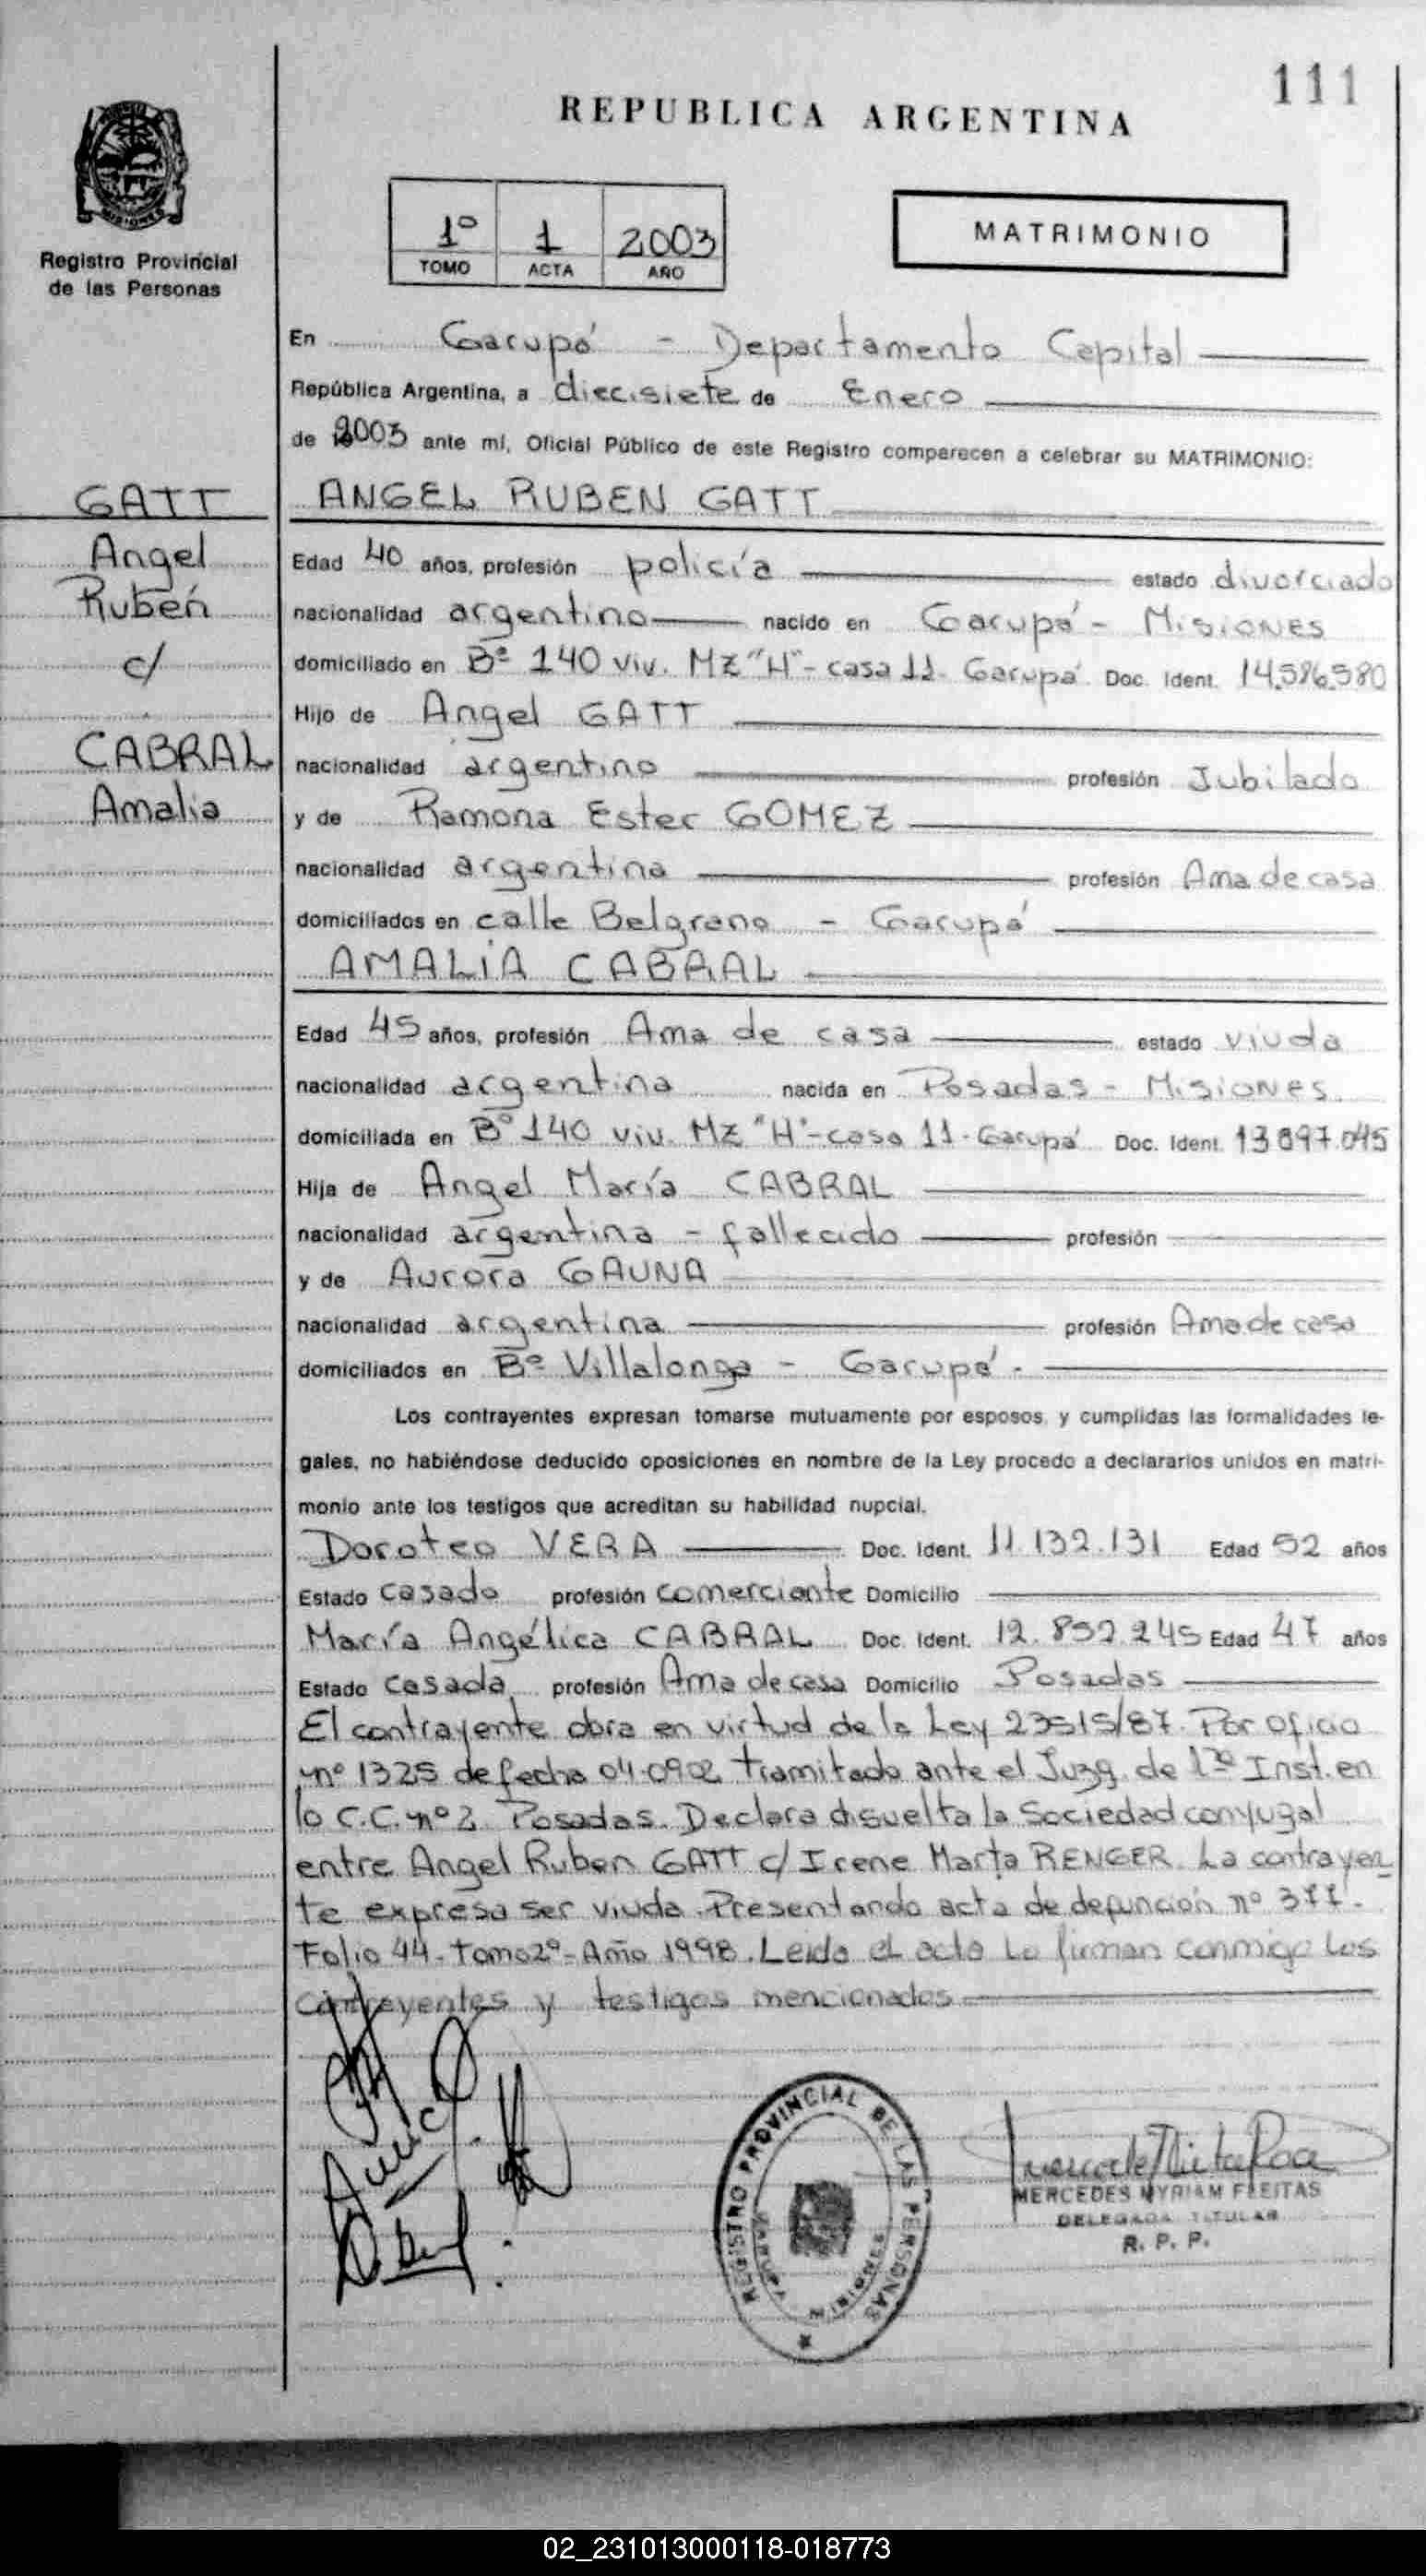 111
REPUBLICA ARGENTINA
MISIONES
Registro Provincial
de las Personas
1º 1 2003
TOMO ACTA AÑO
MATRIMONIO
En Garupá - Departamento Capital
República Argentina, a diecisiete de Enero
de 2003 ante mí, Oficial Público de este Registro comparecen a celebrar su MATRIMONIO:
GATT
Angel
Rubén
c/
CABRAL
Amalia
ANGEL RUBEN GATT
Edad 40 años, profesión policía estado divorciado
nacionalidad argentino nacido en Garupá - Misiones
domiciliado en Bº 140 viv. Mz "H" - casa 11 - Garupá. Doc. Ident. 14.586.580
Hijo de Angel GATT
nacionalidad argentino profesión Jubilado
y de Ramona Ester GOMEZ
nacionalidad argentina profesión Ama de casa
domiciliados en calle Belgrano - Garupá
AMALIA CABRAL
Edad 45 años, profesión Ama de casa estado viuda
nacionalidad argentina nacida en Posadas - Misiones
domiciliada en Bº 140 viv. Mz "H" - casa 11 - Garupá Doc. Ident. 13 897.045
Hija de Angel María CABRAL
nacionalidad argentina - fallecido profesión
y de Aurora GAUNA
nacionalidad argentina profesión Ama de casa
domiciliados en Bº Villalonga - Garupá -
Los contrayentes expresan tomarse mutuamente por esposos, y cumplidas las formalidades le-
gales, no habiéndose deducido oposiciones en nombre de la Ley procedo a declararlos unidos en matri-
monio ante los testigos que acreditan su habilidad nupcial.
Doroteo VERA Doc. Ident. 11 132.131 Edad 52 años
Estado casado profesión comerciante Domicilio
María Angélica CABRAL Doc. Ident. 12.892.245 Edad 47 años
Estado casada profesión Ama de casa Domicilio Posadas
El contrayente obra en virtud de la Ley 23515/87. Por oficio
nº 1325 de fecha 04-09-02 tramitado ante el Juzg. de 1ra Inst. en
lo C.C. nº 2 Posadas. Declara disuelta la Sociedad conyugal
entre Angel Ruben GATT c/ Irene Marta RENGER. La contrayen
te expresa ser viuda. Presentando acta de defunción nº 377-
Folio 44 - Tomo 2º - Año 1998. Leída el acta la firman conmigo los
contrayentes y testigos mencionados
REGISTRO PROVINCIAL DE LAS PERSONAS
GARUPA MISIONES
MERCEDES MYRIAM FLEITAS
DELEGADA TITULAR
R. P. P.
02_231013000118-018773